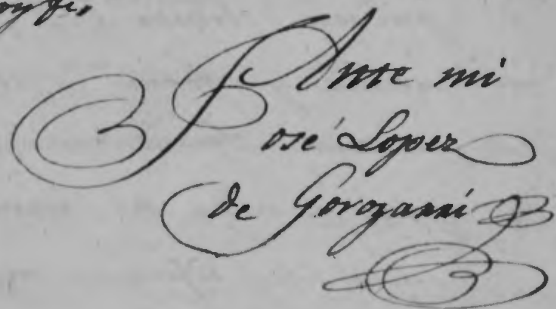 Ante mi
José Lopez
de Goroganri